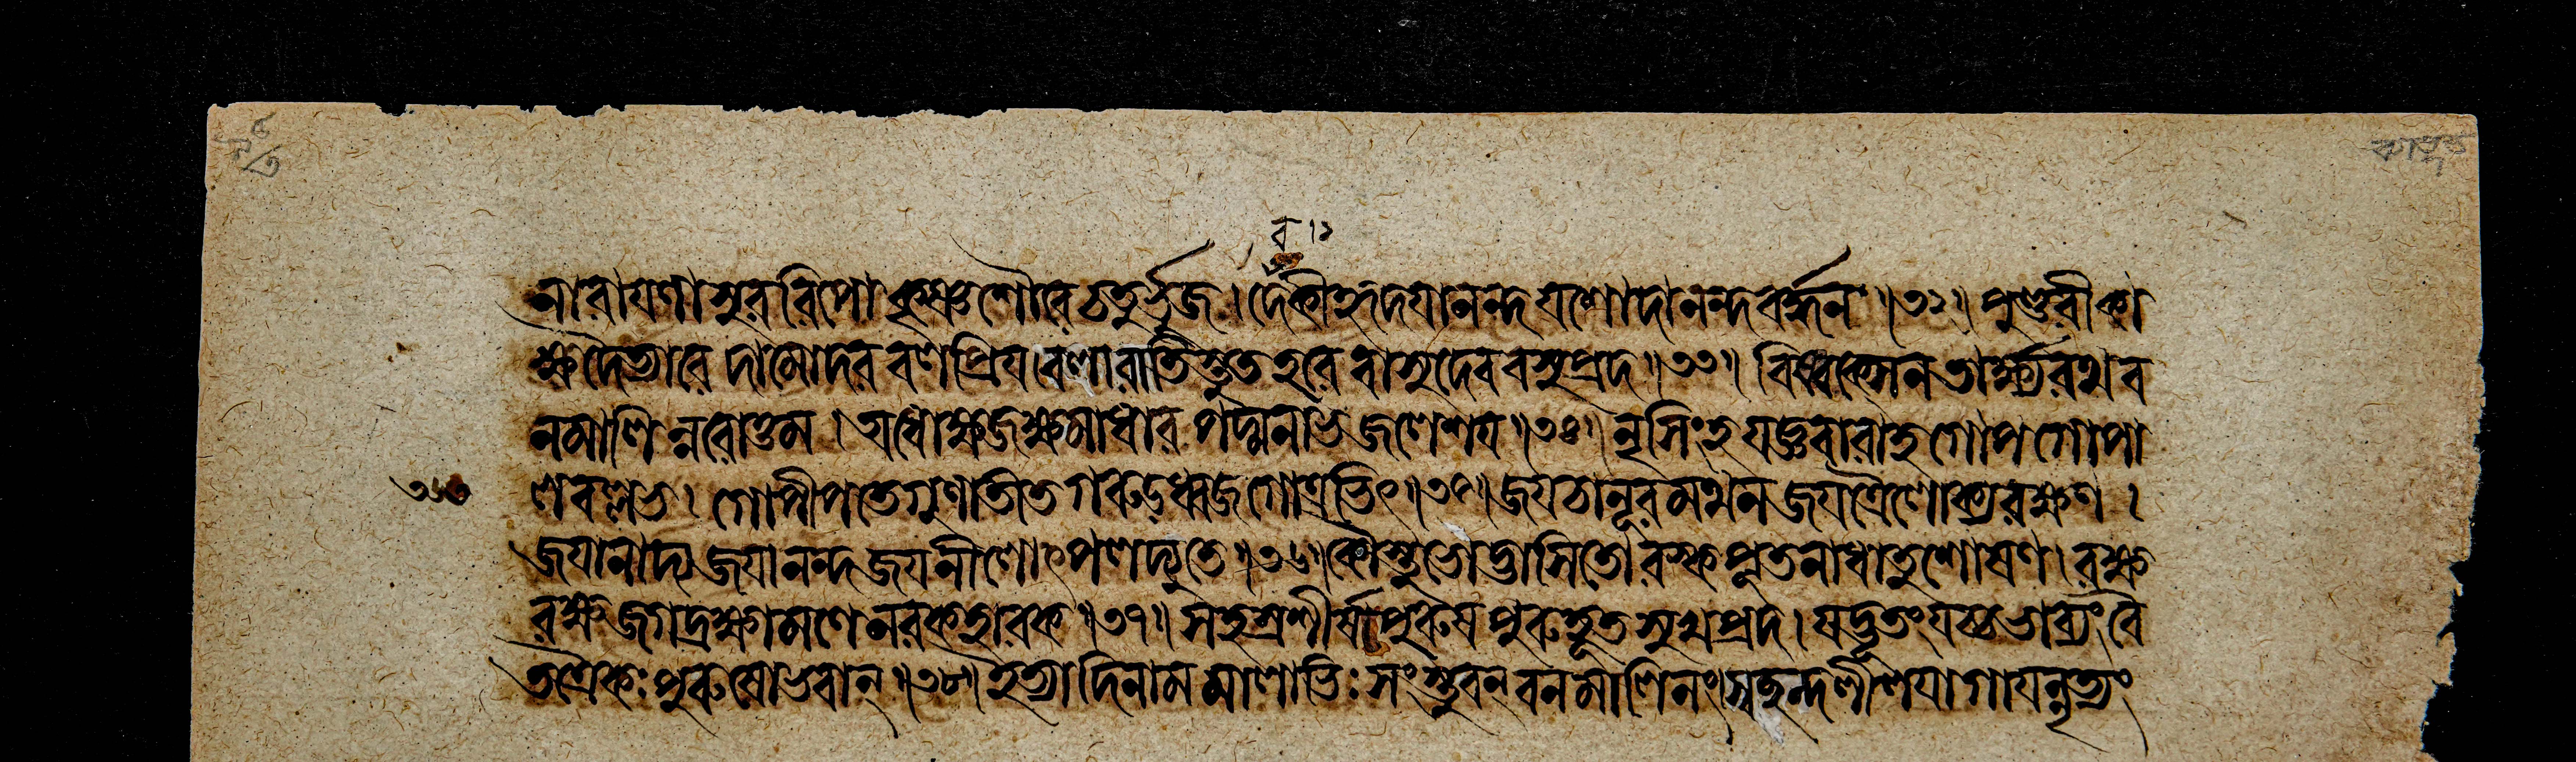 ব ।১
নারাযণাসুররিপো কৃষ্ণ শৌরে চতুর্ভুজ । দেকীহৃদযানন্দ যশোদানন্দবর্দ্ধন ॥৩২॥ পুণ্ডরীকা
ক্ষ দৈত্যারে দামোদর বলপ্রিয বলারাতিস্তুত হরে বাসুদেব বসুপ্রদ ॥৩৩॥ বিষ্বক্সেন তার্ক্ষ্যরথ ব
নমালিন্নরোত্তম । অধোক্ষজ ক্ষমাধার পদ্মনাভ জলেশয ॥৩৪॥ নৃসিংহ যজ্ঞবারাহ গোপ গোপা
লবল্লভ । গোপীপতে গুণাতিত গরুড়ধ্বজ গোত্রভিৎ ॥৩৫॥ জয চানূরমথন জয ত্রৈলোক্যরক্ষণ ।
জযানাদ্য জযানন্দ জয নীলোৎপলদ্যুতে ॥৩৬॥ কৌস্তুভোদ্ভাসিতোরস্ক পূতনাধাতুশোষণ । রক্ষ
রক্ষ জগদ্রক্ষামণে নরকহারক ॥৩৭॥ সহস্রশীর্ষা পুরুষ পুরুহূতসুখপ্রদ । যদ্ভূতং যচ্চ ভাব্যং বৈ
তত্রৈকঃ পুরুষো ভবান্ ॥৩৮॥ ইত্যাদিনামমালাভিঃ সংস্তুবন্ বনমালিনং । স্বচ্ছন্দলীলযা গাযন্নৃত্যং